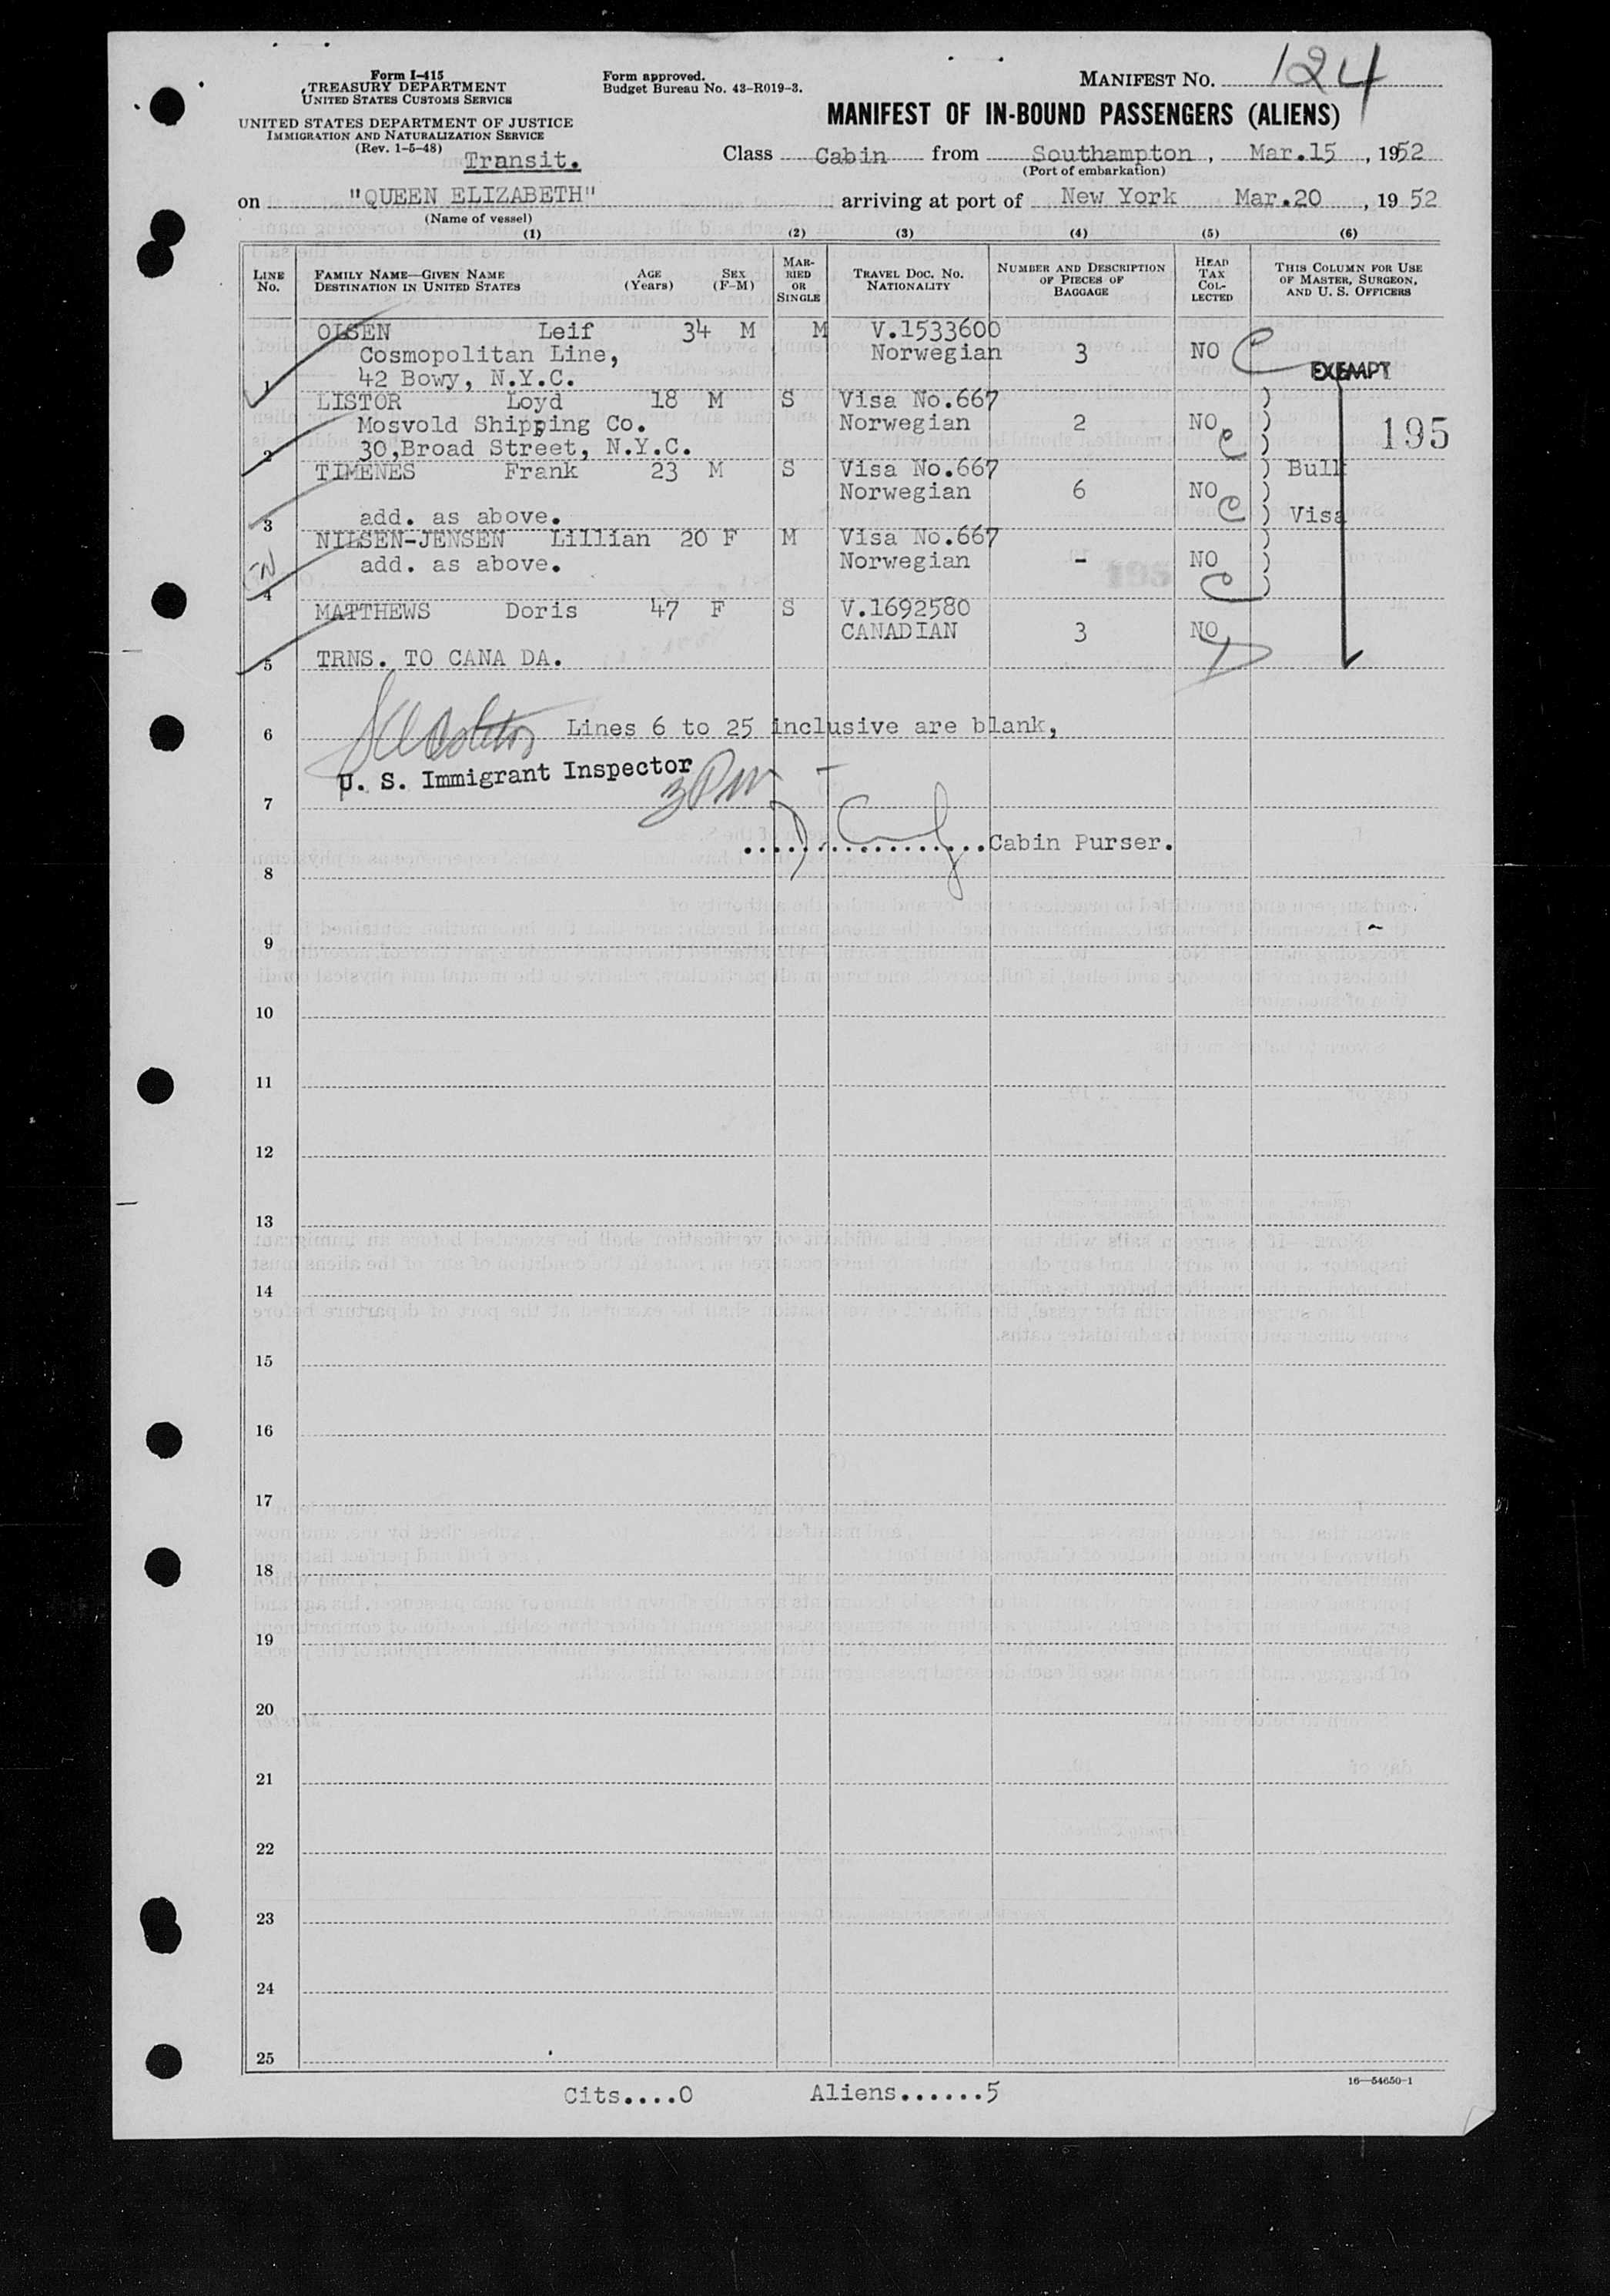 Form I-415
TREASURY DEPARTMENT
UNITED STATES CUSTOMS SERVICE
UNITED STATES DEPARTMENT OF JUSTICE
IMMIGRATION AND NATURALIZATION SERVICE
(Rev. 1-5-48)
Transit.
Form approved.
Budget Bureau No. 43-R019-3.
MANIFEST NO. 124
MANIFEST OF IN-BOUND PASSENGERS (ALIENS)
Class Cabin from Southampton, Mar.15, 1952
(Port of embarkation)
on "QUEEN ELIZABETH" arriving at port of New York Mar.20, 1952
(Name of vessel)
(1) (2) (3) (4) (5) (6)
LINE No. FAMILY NAME—GIVEN NAME DESTINATION IN UNITED STATES AGE (Years) SEX (F-M) MARRIED OR SINGLE TRAVEL DOC. NO. NATIONALITY NUMBER AND DESCRIPTION OF PIECES OF BAGGAGE HEAD TAX COLLECTED THIS COLUMN FOR USE OF MASTER, SURGEON, AND U. S. OFFICERS
OLSEN Leif 34 M M V.1533600
Cosmopolitan Line, Norwegian 3 NO C
EXEMPT
1 42 Bowy, N.Y.C.
LISTOR Loyd 18 M S Visa No.667 )
Mosvold Shipping Co. Norwegian 2 NO C ) 195
2 30,Broad Street, N.Y.C. )
TIMENES Frank 23 M S Visa No.667 ) Bulk
Norwegian 6 NO C )
3 add. as above. ) Visa
NILSEN-JENSEN Lillian 20 F M Visa No.667 )
add. as above. Norwegian - NO C )
4 )
MATTHEWS Doris 47 F S V.1692580
CANADIAN 3 NO
5 TRNS. TO CANA DA.
6 Lines 6 to 25 inclusive are blank,
U. S. Immigrant Inspector
3PM
7
................Cabin Purser.
8
9
10
11
12
13
14
15
16
17
18
19
20
21
22
23
24
25
16—54650-1
Cits....0 Aliens......5